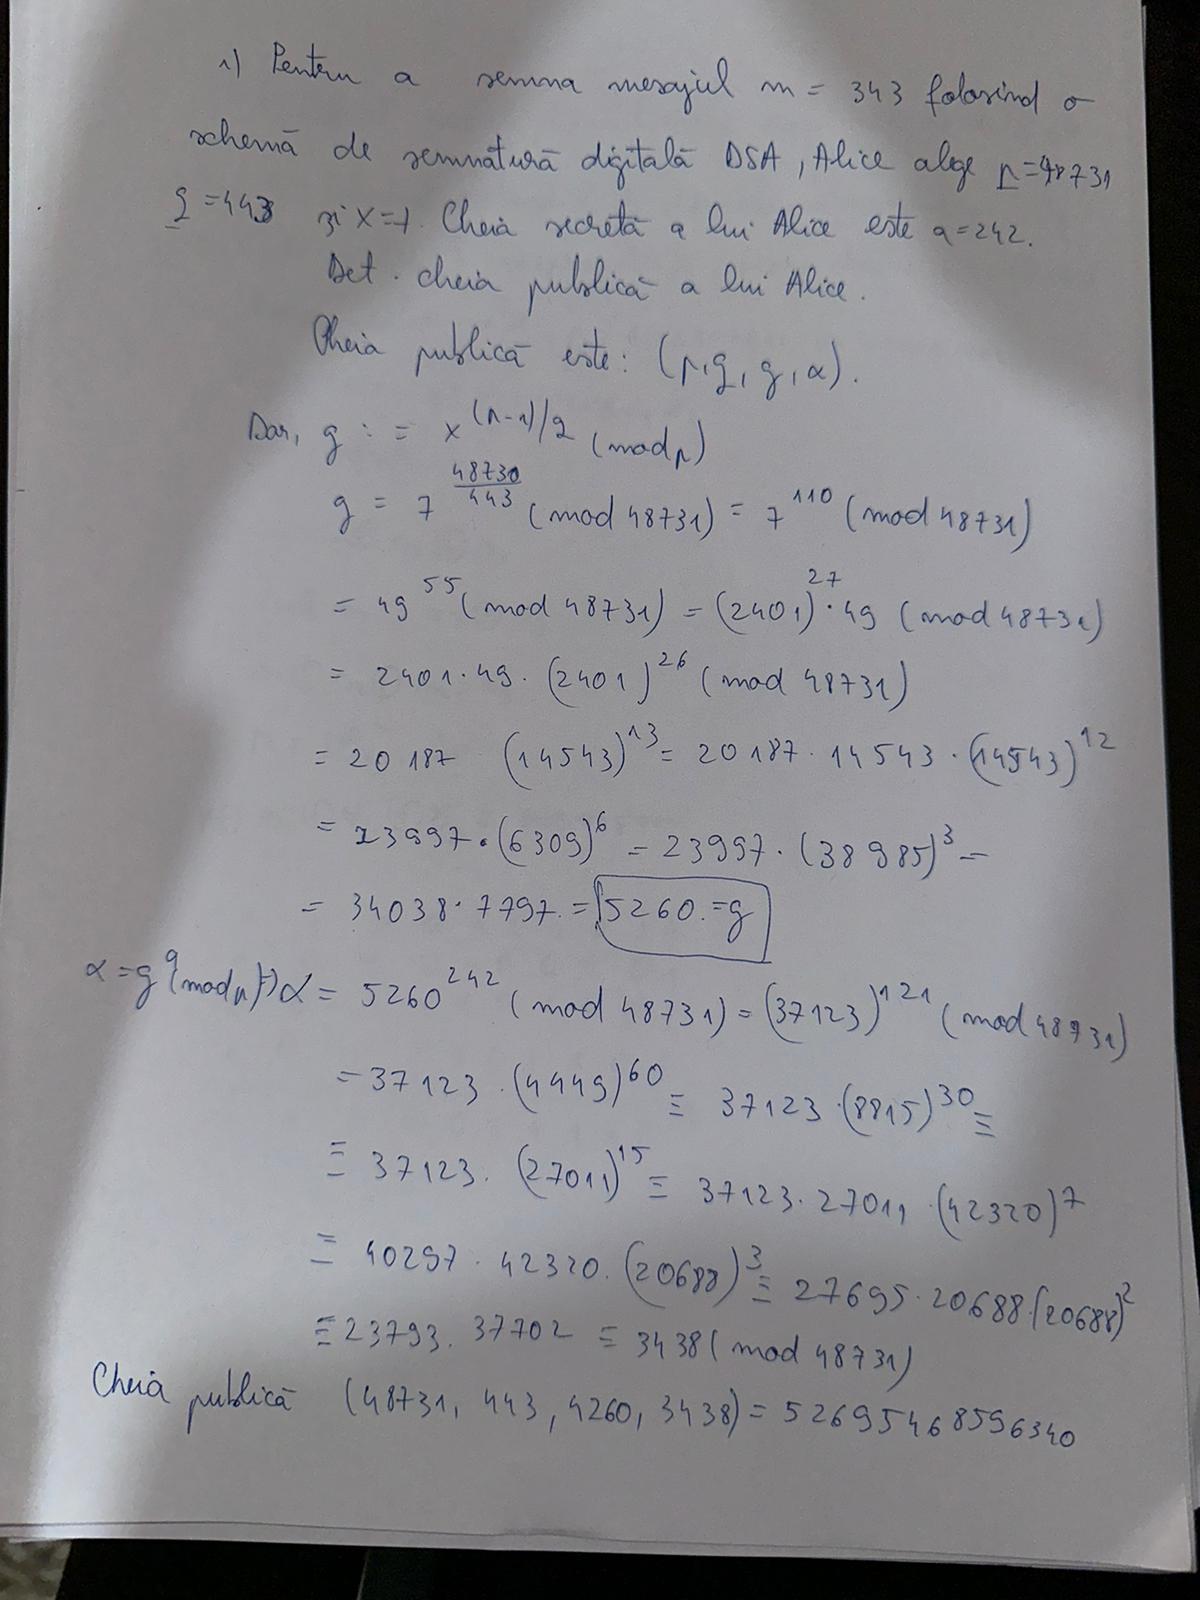 1) Pentru a semna mesajul m = 343 folosind o
schemă de semnătură digitală DSA, Alice alege p=48731
q=443 și x=7. Cheia secretă a lui Alice este a=242.
Det. cheia publică a lui Alice.
Cheia publică este: (p,q,g,α).
Dar, g := x^(p-1)/q (mod p)
g = 7^48730/443 (mod 48731) = 7^110 (mod 48731)
= 49^55 (mod 48731) = (2401)^27 · 49 (mod 48731)
= 2401 · 49 · (2401)^26 (mod 48731)
= 20187 (14543)^13 = 20187 · 14543 · (14543)^12
= 23997 · (6309)^6 = 23997 · (38985)^3 =
= 34038 · 7797 = 5260 = g
α = g^a (mod p) => α = 5260^242 (mod 48731) = (37123)^121 (mod 48731)
= 37123 · (4449)^60 ≡ 37123 · (8815)^30 ≡
≡ 37123 · (27011)^15 ≡ 37123 · 27011 · (42320)^7
≡ 40297 · 42320 · (20688)^3 ≡ 27695 · 20688 · (20688)^2
≡ 23793 · 37702 ≡ 3438 (mod 48731)
Cheia publică (48731, 443, 4260, 3438) = 52695468596340